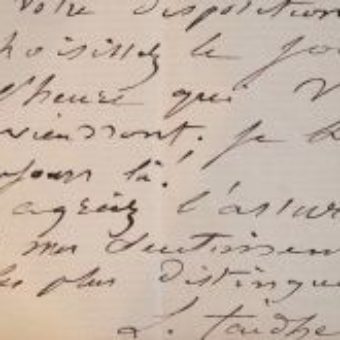 votre disposition
choisissez le jou
l'heure qui v
viendront. je
toujours là!
agréez l'assur
mes sentimen
les plus distingué